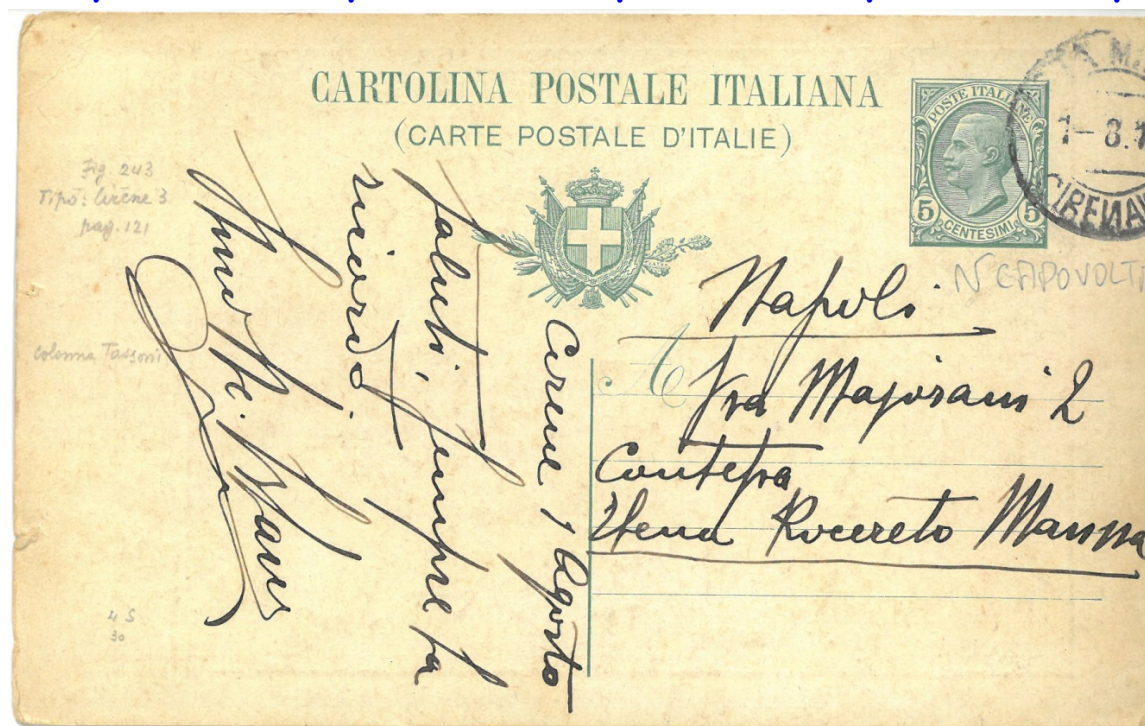 CARTOLINA POSTALE ITALIANA
(CARTE POSTALE D'ITALIE)
POSTE ITALIANE
5 5
CENTESIMI
1-8.1
CIRENAI
N CAPOVOLT
Fig. 243
Tipo: Cirene 3
pag. 121
colonna Tassoni
4 S
30
Napoli
A Via Majorani 2
Contessa
Elena Rocereto
Cirene 1 Agosto
saluti, sempre
ricordi.